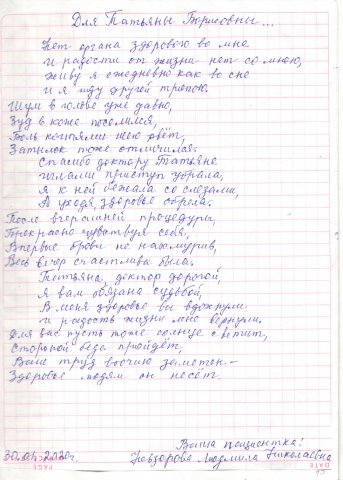 Для Татьяны Борисовны...
Нет органа здорового во мне
и радости от жизни нет со мною,
живу я ежедневно как во сне
и я иду другой тропою.
Шум в голове уже давно,
Зуд в коже поселился,
Боль когтями шею рвёт,
Затылок тоже отличился.
Спасибо доктору Татьяне
иглами приступ убрала,
я к ней бежала со слезами,
А уходя, здоровье обрела.
После вчерашней процедуры,
Прекрасно чувствуя себя,
Впервые брови не нахмурив,
Весь вечер счастлива была.
Татьяна, доктор дорогой,
Я вам обязана судьбой,
В меня здоровье вы вдохнули
и радость жизни мне вернули.
Для вас пусть тоже солнце светит,
Стороной беда пройдёт,
Ваш труд воочию заметен -
Здоровье людям он несёт.
Ваша пациентка!
30.04.2020г. Невзорова Людмила Николаевна
PAGE
DATE